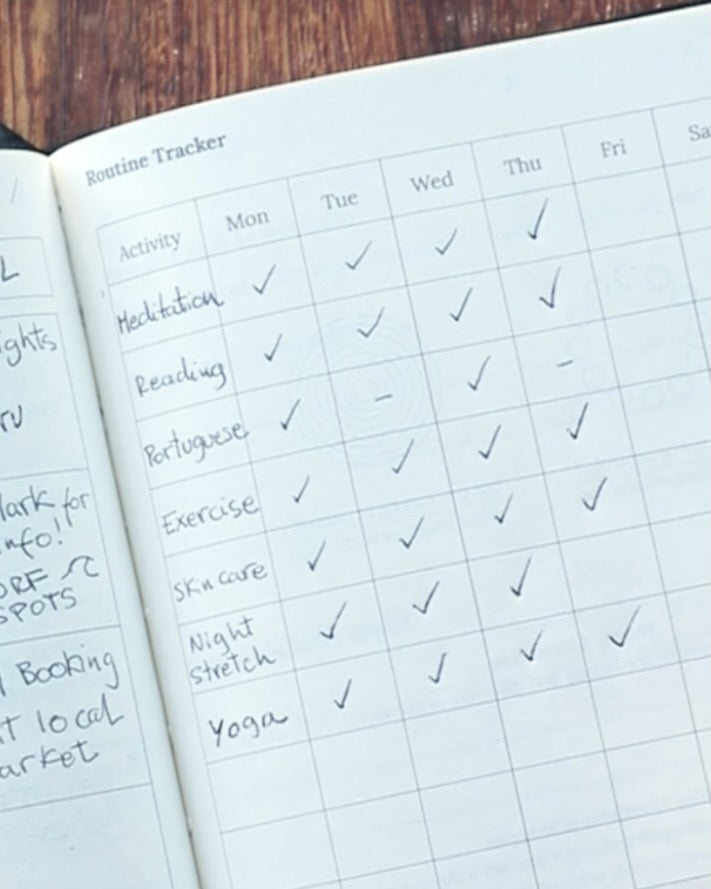 L
ights
lark for
nfo!
ORF
SPOTS
Booking
t local
arket
Routine Tracker
Activity Mon Tue Wed Thu Fri Sa
Meditation ✓ ✓ ✓ ✓
Reading ✓ ✓ ✓ ✓
Portuguese ✓ – ✓ –
Exercise ✓ ✓ ✓ ✓
Skin care ✓ ✓ ✓ ✓
Night
Stretch ✓ ✓ ✓
Yoga ✓ ✓ ✓ ✓